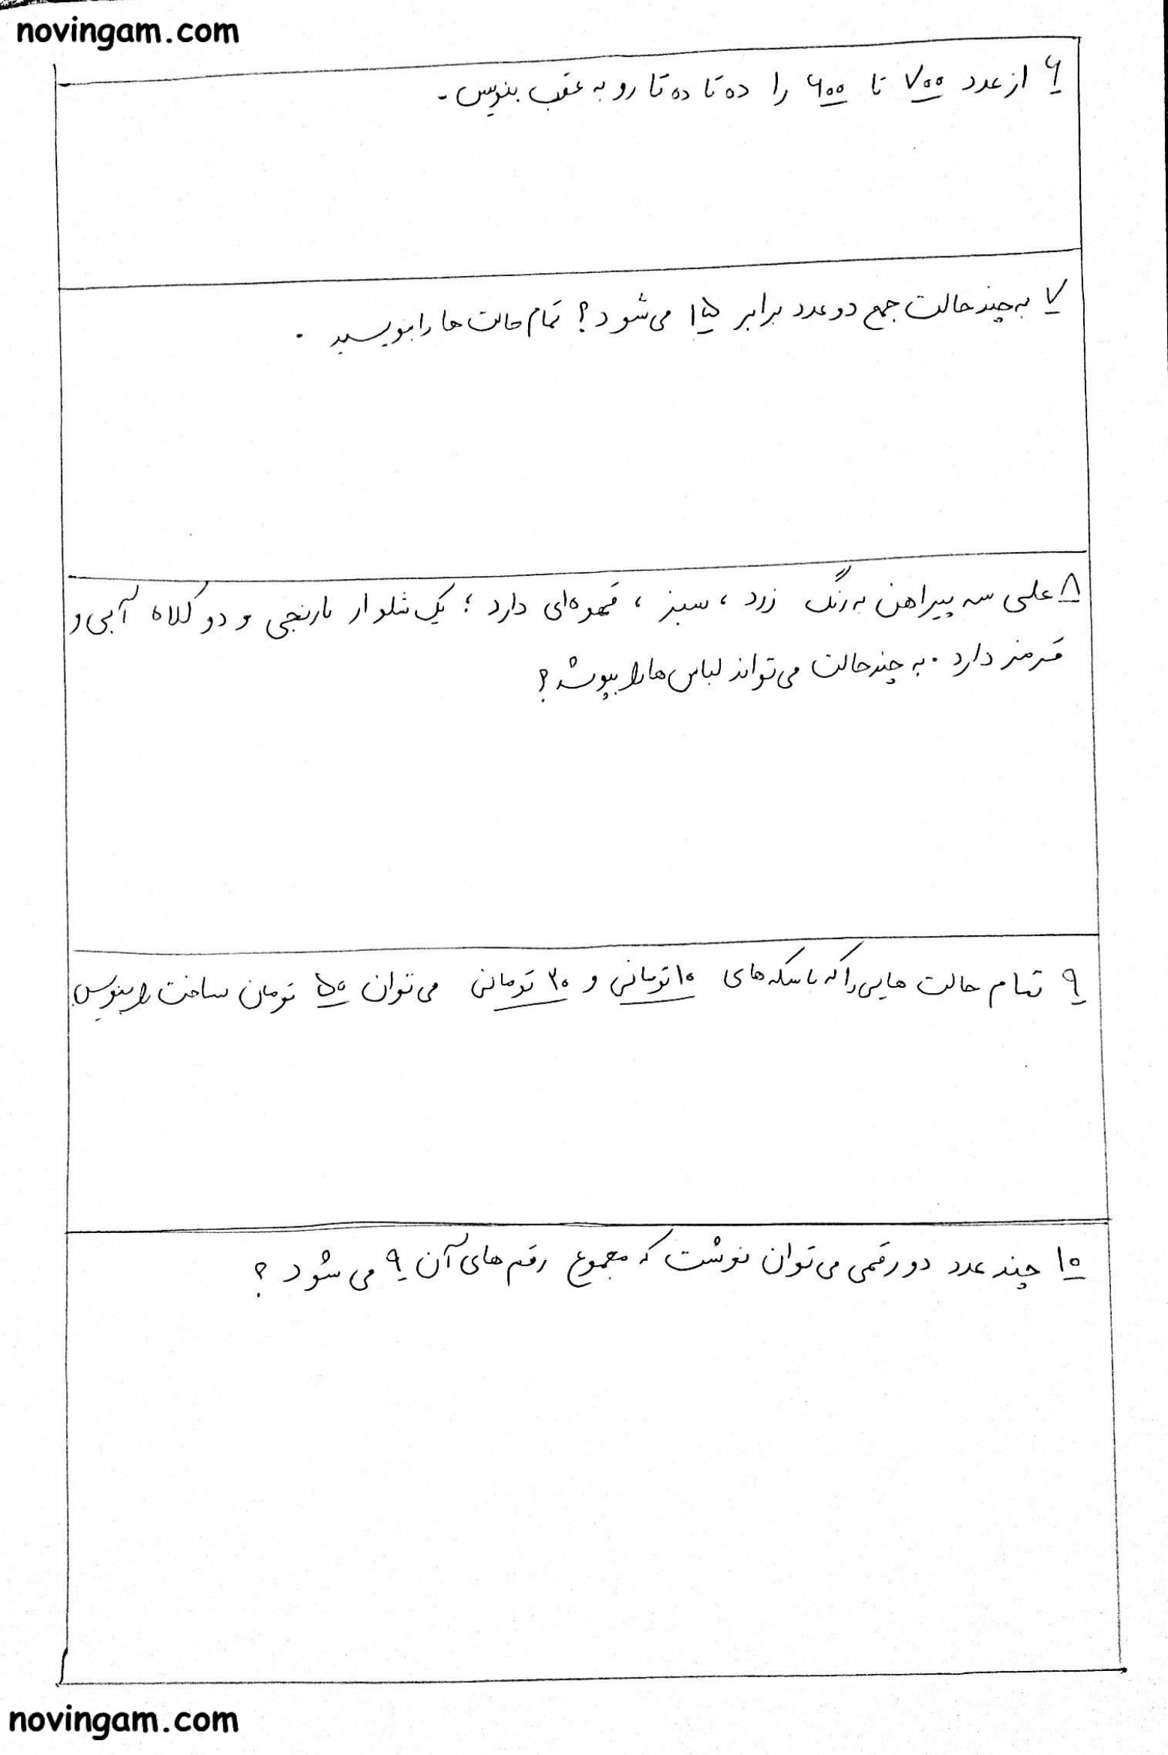 novingam.com
۶ از عدد ۷۰۰ تا ۶۰۰ را ده تا ده تا رو به عقب بنویس.
۷ به چند حالت جمع دو عدد برابر ۱۵ می‌شود؟ تمام حالت ها را بنویسید.
۸ علی سه پیراهن به رنگ زرد، سبز، قهوه‌ای دارد؛ یک شلوار نارنجی و دو کلاه آبی و
قرمز دارد. به چند حالت می‌تواند لباس ها را بپوشد؟
۹ تمام حالت هایی را که با سکه های ۱۰ تومانی و ۲۰ تومانی می‌توان ۵۰ تومان ساخت را بنویس.
۱۰ چند عدد دو رقمی می‌توان نوشت که مجموع رقم های آن ۹ می شود؟
novingam.com